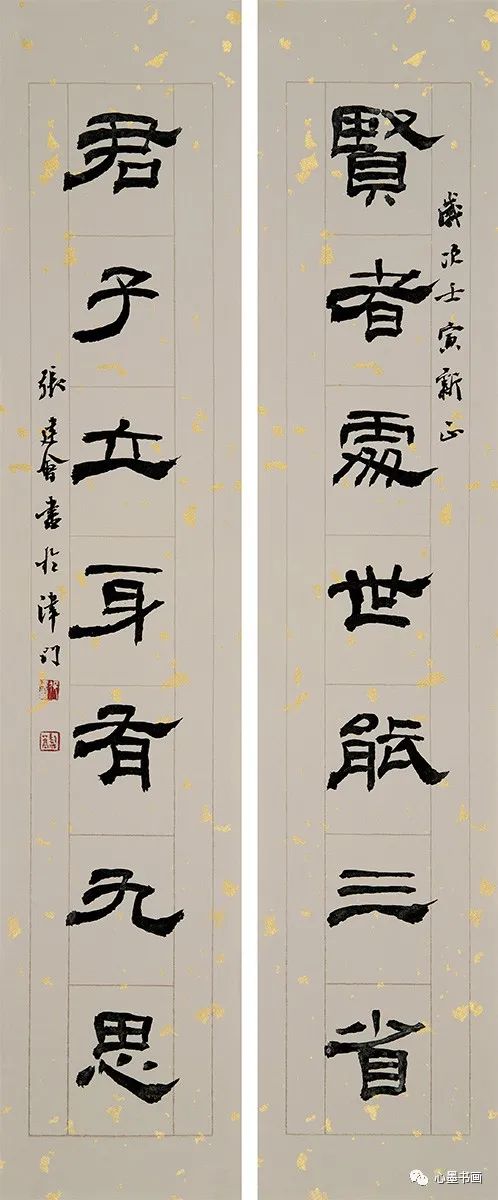 歲次壬寅新正
賢者處世能三省
君子立身有九思
張建會書於津門
心墨书画